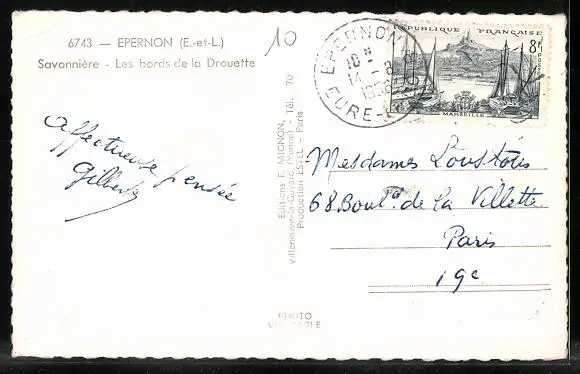 6743 — EPERNON (E.-et-L.)
Savonnière - Les bords de la Drouette
10
Affectueuse pensée
Gilberte
Editions F. MIGNON,
Villeneuve-la-Guyard (Yonne) - Tél. 70
Production ESTEL - Paris
PHOTO
VERITABLE
EPERNON
18 H
14 - 8
1956
EURE-
REPUBLIQUE FRANÇAISE
8F
POSTES
MARSEILLE
Mesdames Loustots
68 Bould de La Villette
Paris
19e